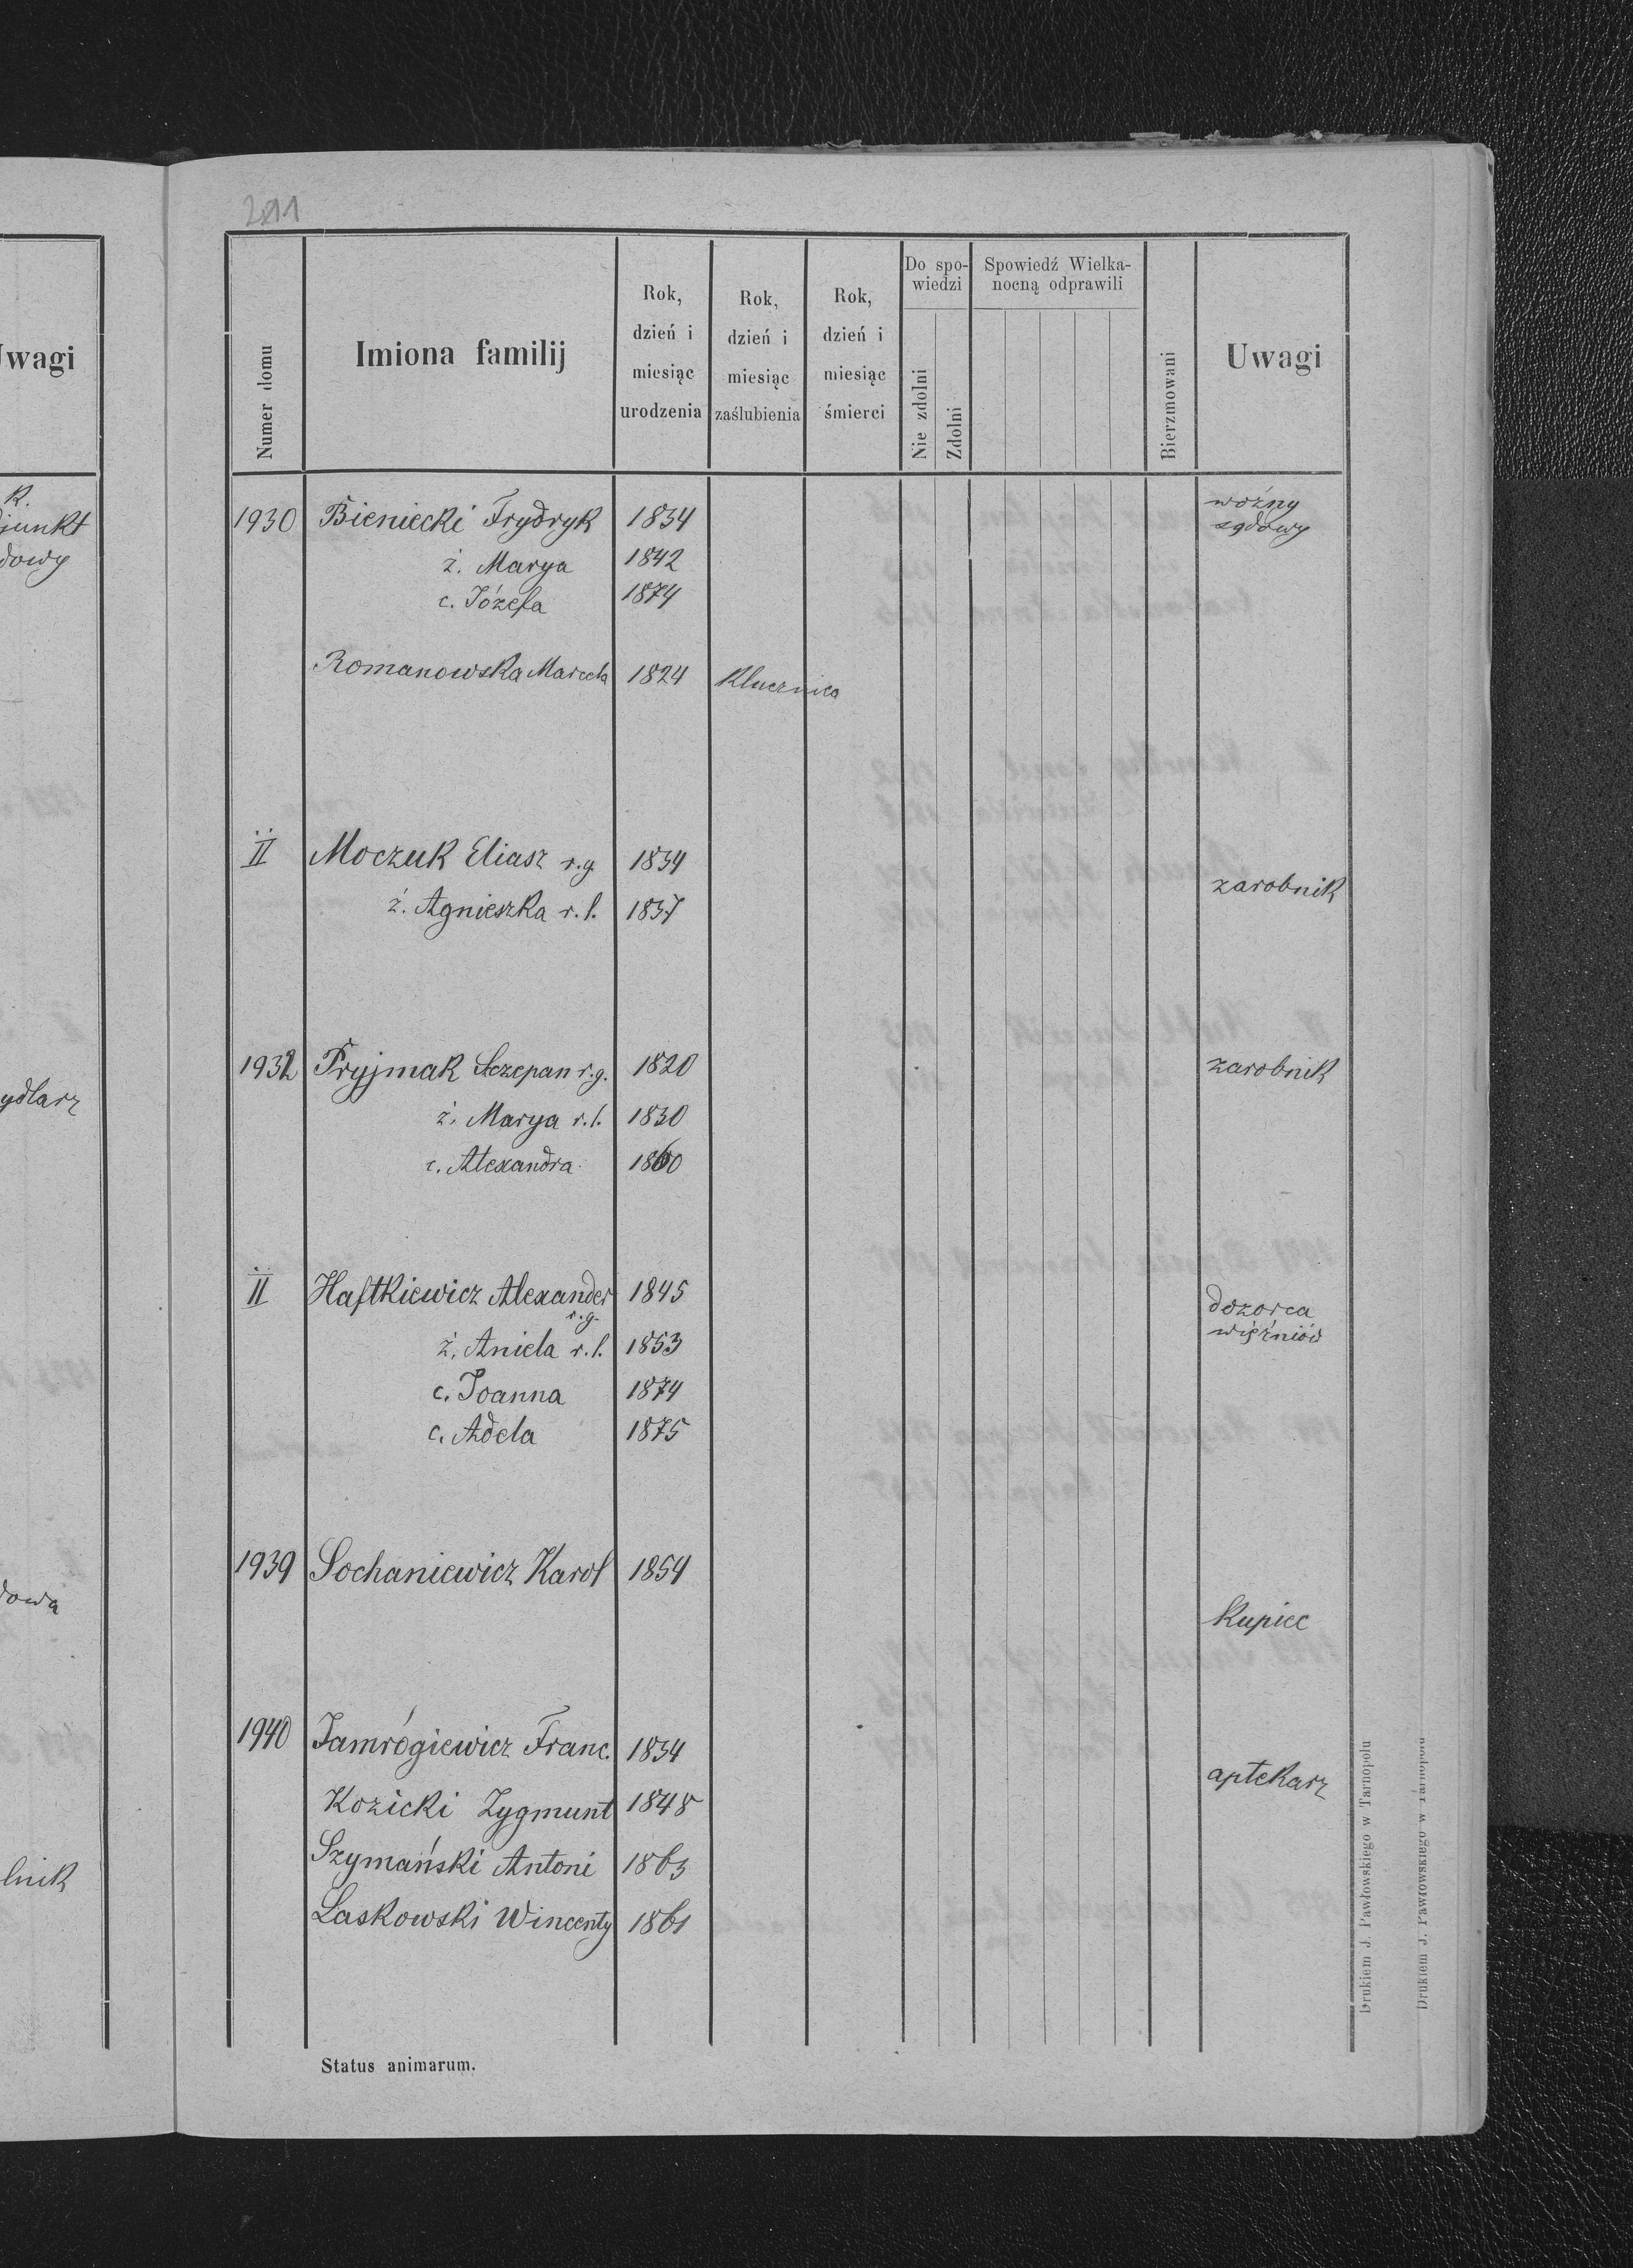 211
Uwagi
R.
junkt
dowy
ydlarz
dowa
lnik
Numer domu
Imiona familij
Rok,
dzień i
miesiąc
urodzenia
Rok,
dzień i
miesiąc
zaślubienia
Rok,
dzień i
miesiąc
śmierci
Do spo-
wiedzi
Nie zdolni
Zdolni
Spowiedź Wielka-
nocną odprawili
Bierzmowani
Uwagi
1930 Bieniecki Frydryk 1834 woźny
sądowy
ż. Marya 1842
c. Józefa 1874
Romanowska Marcela 1824 Klucznica
II Moczuk Eliasz r.g. 1834
zarobnik
ż. Agnieszka r.l. 1837
1932 Pryjmak Szczepan r.g. 1820 zarobnik
ż. Marya r.l. 1830
c. Alexandra 1860
II Haftkiewicz Alexander 1845
r.g.
dozorca
więźniów
ż. Aniela r.l. 1853
c. Joanna 1874
c. Adela 1875
1939 Sochaniewicz Karol 1854
Kupiec
1940 Jamrógiewicz Franc. 1834
aptekarz
Kozicki Zygmunt 1848
Szymański Antoni 1863
Laskowski Wincenty 1861
Status animarum.
Drukiem J. Pawłowskiego w Tarnopolu
Drukiem J. Pawłowskiego w Tarnopolu